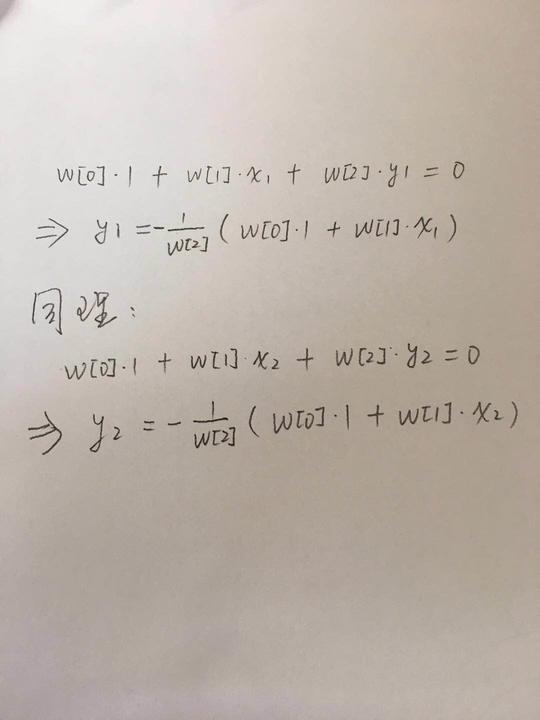 w[0]·1 + w[1]·x₁ + w[2]·y1 = 0
⇒ y1 = -1/w[2] (w[0]·1 + w[1]·x₁)
同理:
w[0]·1 + w[1]·x₂ + w[2]·y₂ = 0
⇒ y₂ = - 1/w[2] (w[0]·1 + w[1]·x₂)